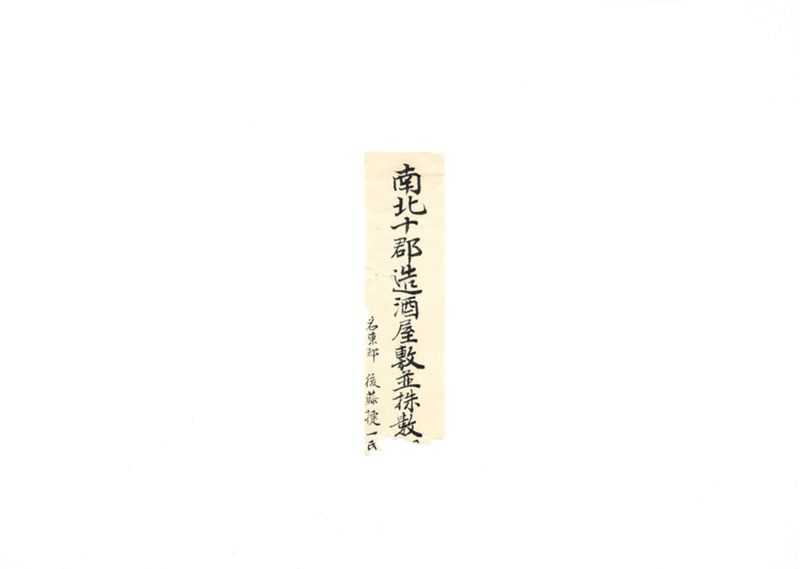 南北十郡造酒屋敷並株數
名東郡 後藤捷一氏